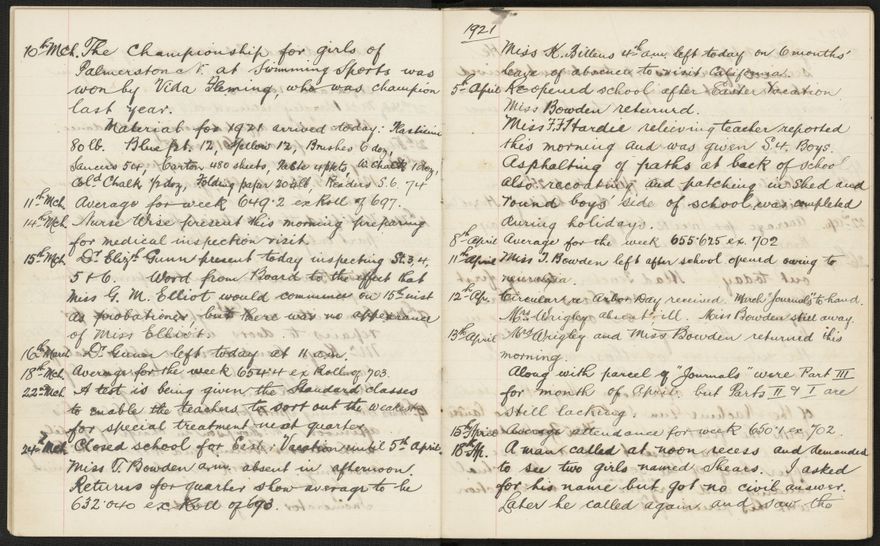 10th Mch. The Championship for girls of
Palmerston N. at Swimming Sports was
won by Vida Fleming, who was champion
last year.
Material for 1921 arrived today: Plasticine
80 lb. Blue pt. 12, Yellow 12, Brushes 6 doz,
Saucers 54, Carton 480 sheets, Table 4 pkts, W. Chalk 1 doz,
Col'd Chalk ½ doz, Folding paper 20 lb, Readers S.6. 74
11th Mch. Average for week 649.2 ex Roll of 697.
14th Mch. Nurse Wise present this morning preparing
for medical inspection visit
15th Mch. Dr Elizth Gunn present today inspecting St. 3, 4,
5 & 6. Word from Board to the effect that
Miss G. M. Elliot would commence on 15th inst
as probationer but there was no appearance
of Miss Elliot.
16th March Dr Gunn left today at 11 a.m.
18th Mch. Average for the week 654.4 ex Roll of 703.
22nd Mch. A test is being given the Standard classes
to enable the teachers to sort out the weakest
for special treatment next quarter
24th Mch. Closed school for East. Vacation until 5th April.
Miss T. Bowden a.m. absent in afternoon.
Returns for quarter show average to be
632.040 ex Roll of 693.
1921
Miss K. Billens 4th am. left today on 6 months'
leave of absence to visit California.
5th April Re-opened school after Easter vacation
Miss Bowden returned.
Miss F. F. Hardie relieving teacher reported
this morning and was given S.4. Boys.
Asphalting of paths at back of school
also recoating and patching in shed and
round boys' side of school was completed
during holidays.
8th April Average for the week 655.625 ex. 702
11th April Miss T. Bowden left after school opened owing to
neuralgia.
12th Ap. Circular re Arbor Day received. March "Journals" to hand.
Mrs Wrigley absent - ill. Miss Bowden still away.
13th April Mrs Wrigley and Miss Bowden returned this
morning.
Along with parcel of "Journals" were Part III
for month of April but Parts II & I are
still lacking.
15th April Average attendance for week 650.1 ex 702.
18th Ap. A man called at noon recess and demanded
to see two girls named Shears. I asked
for his name but got no civil answer.
Later he called again and saw the